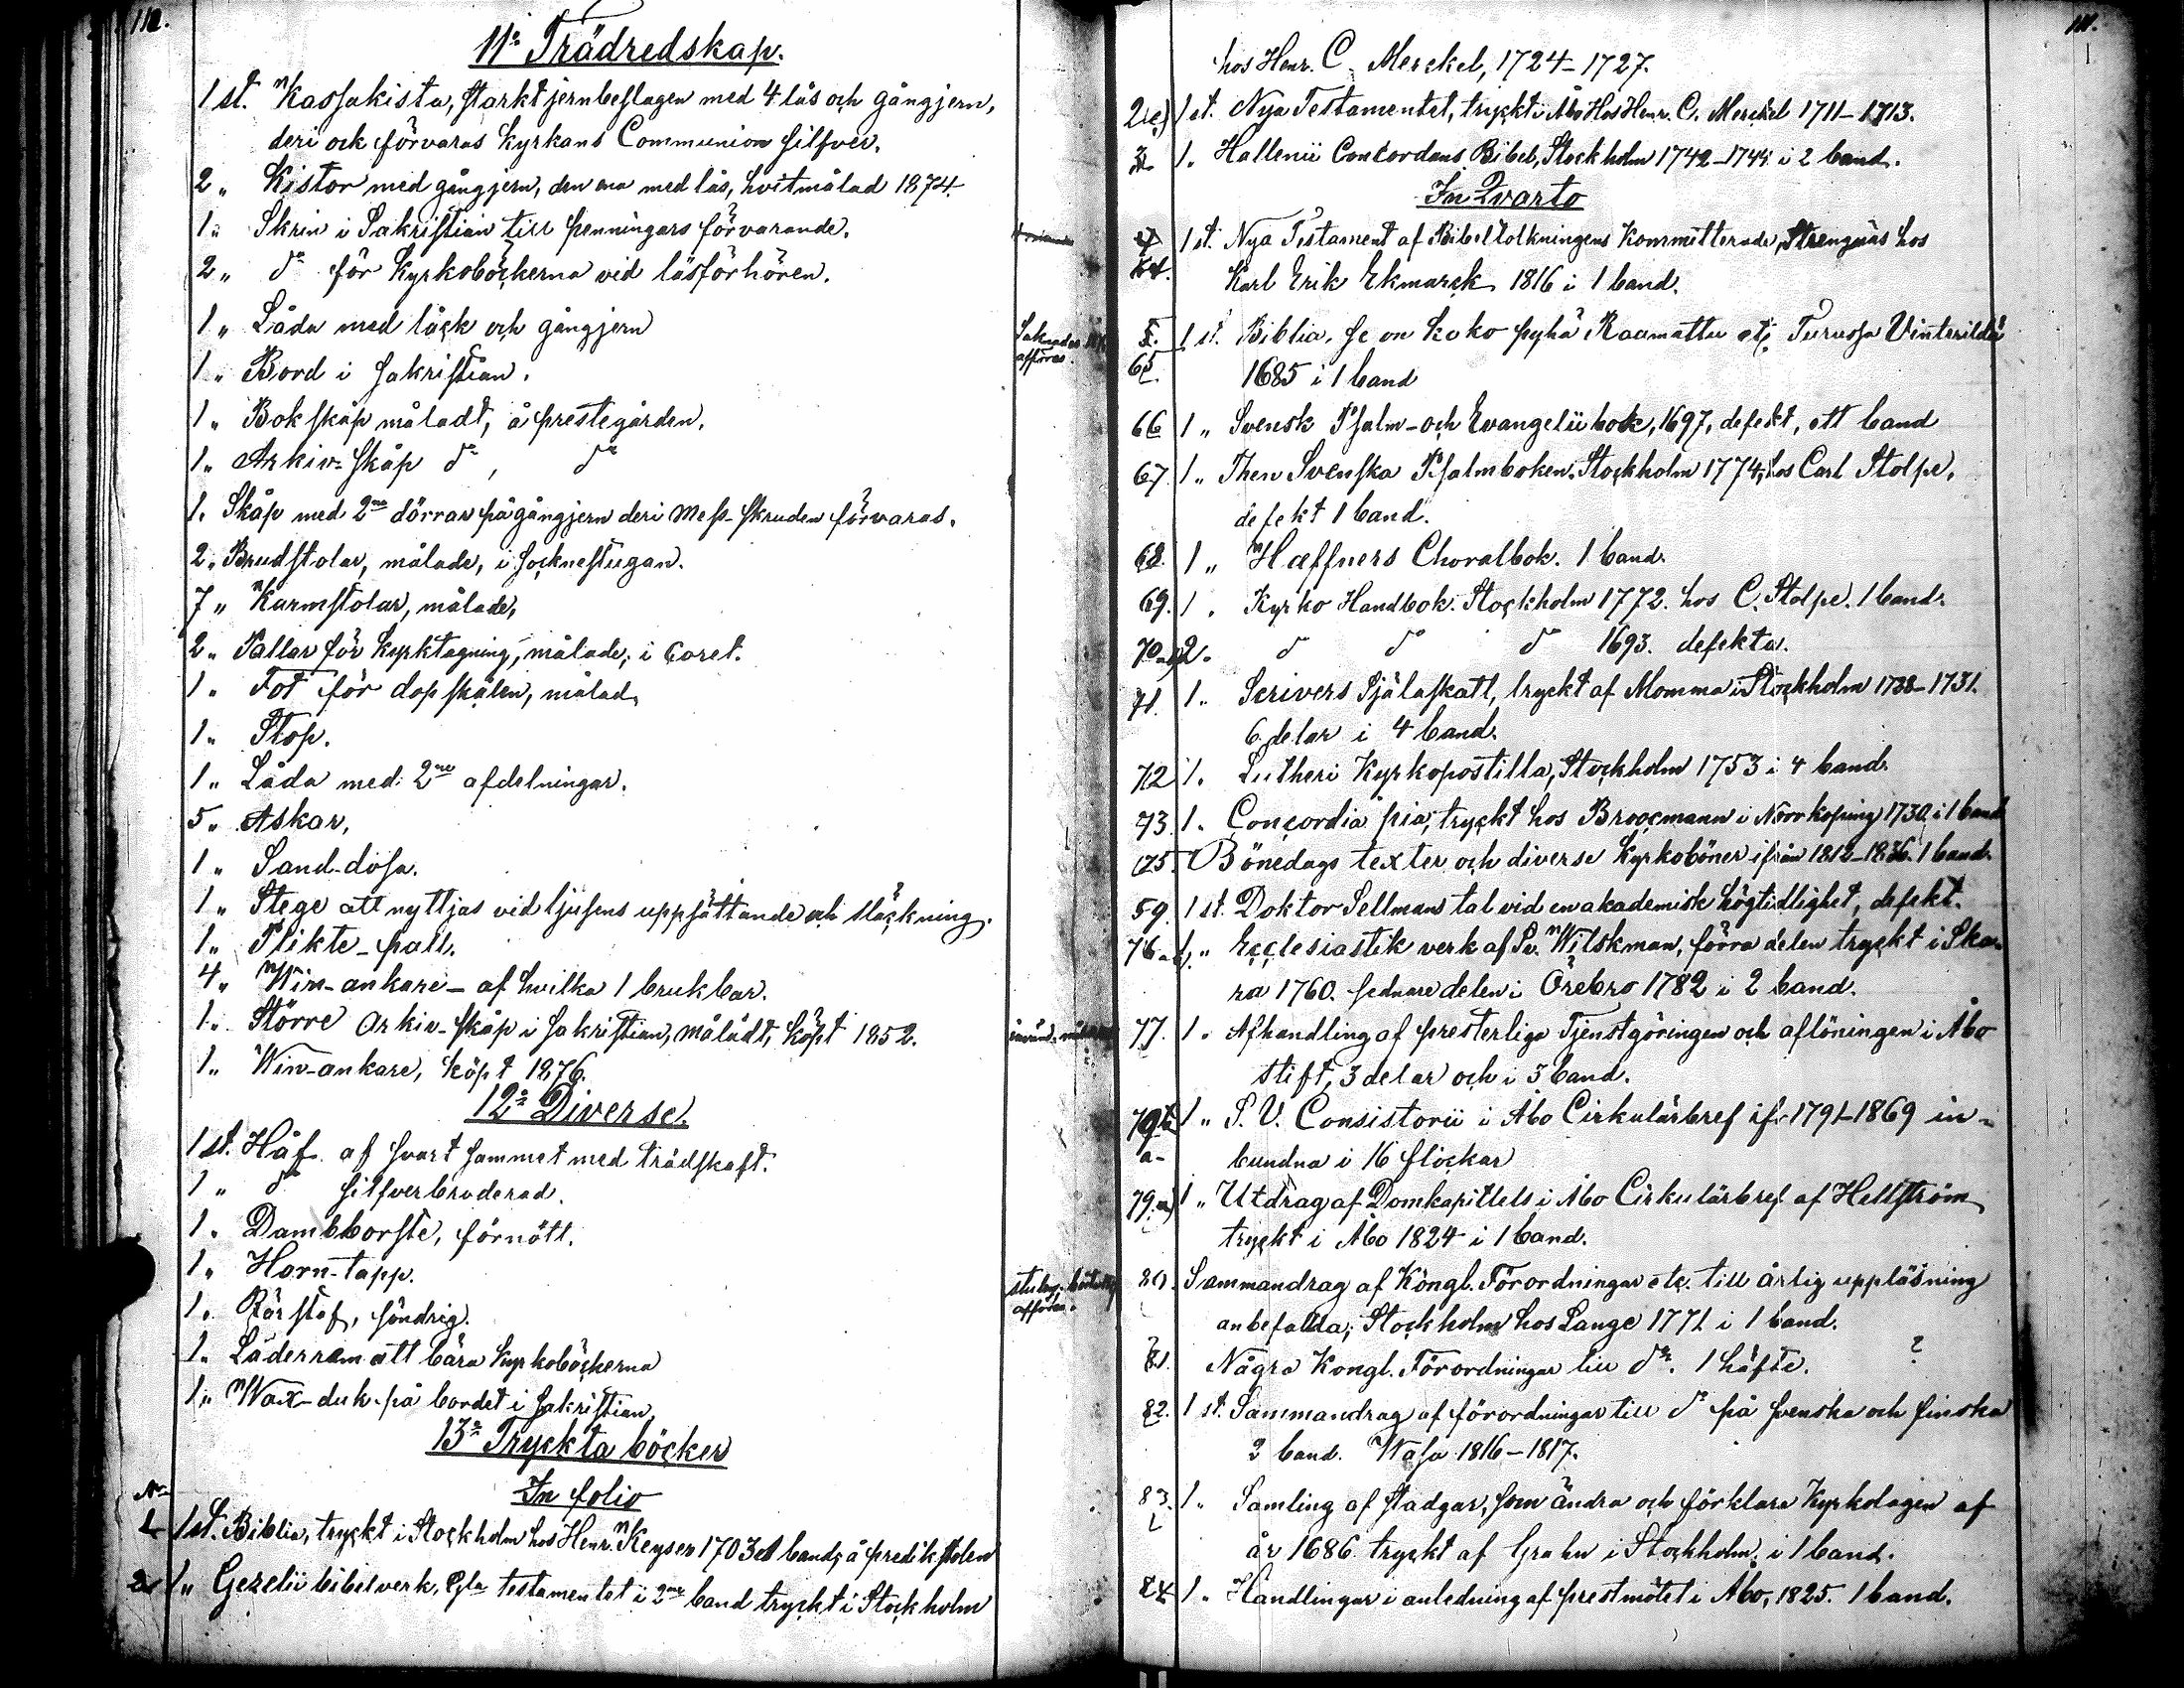 110.
11o Trädredskap.
1 st. Kassakista, starkt jernbeslagen med 4 lås och gångjern,
deri ock förvaras Kyrkans Communion silfver.
2 „ Kistor med gångjern, den ena med lås, hvitmålad 1874.
1 „ Skrin i Sakristian till penningars förvarande.
2 „ do för Kyrkoböckerna vid läsförhören.
1 „ Låda med låck och gångjern
1 „ Bord i Sakristian.
1 „ Bokskåp måladt, å prestegården.
1 „ Arkiv-skåp do, do
1. Skåp med 2ne dörrar på gångjern deri Mess-skruden förvaras.
2. Brudstolar, målade, i Socknestugan.
7 „ Karmstolar, målade,
2 „ Pallar för kyrktagning, målade, i Coret.
1 „ Fot för dopskålen, målad,
1 „ Stop.
1 „ Låda med 2ne afdelningar.
5 „ Askar,
1 „ Sand-dosa.
1 „ Stege att nyttjas vid ljusens uppsättande och släckning.
1 „ Plikte-pall.
4 „ Win-ankare - af hvilka 1 brukbar.
1 „ Större Arkiv-skåp i Sakristian, måladt, köpt 1852.
1 „ Win-ankare, köpt 1876.
12o Diverse.
1 st. Håf af svart sammet med trädskaft.
1 „ do silfverbroderad.
1. Dambborste, förnött.
1. Horn-tapp.
1. Rörstof, söndrig.
1. Läderrem att bära Kyrkoböckerna
1 „ Wax-duk på bordet i Sakristian
13o Tryckta böcker
In folio
No
1 1 st. Biblia, tryckt i Stockholm hos Henr. Keyser 1703 ett band, å predikstolen
2 1 „ Gezelii bibelverk, Gla testamentet i 2ne band tryckt i Stockholm
Saknades
afföras.
afföras.
111.
hos Henr. C. Merckel, 1724-1727.
2 c) 1 st. Nya Testamentet, tryckt i Åbo Hos Henr. C. Merckel 1711-1713.
3 1. Hallenii Concordans Bibel, Stockholm 1742-1744 i 2 band.
In Qvarto
4 1 st. Nya Testament af Bibeltolkningens Kommitterade, Strengnäs hos
64. Karl Erik Ekmarck 1816 i 1 band.
5. 1 st. Biblia, se on koko pyhä Raamattu etc. Turussa Vinterildä
65. 1685 i 1 band
66 1 „ Svensk Psalm- och Evangelii bok, 1697, defekt, ett band
67. 1 „ Then Svenska Psalmboken. Stockholm 1774, hos Carl Stolpe,
defekt 1 band.
68. 1 „ Hæffners Choralbok. 1 band.
69. 1. Kyrko Handbok. Stockholm 1772. hos C. Stolpe. 1 band.
70 2. do do do 1693. defekta.
71. 1 „ Scrivers Själaskatt, tryckt af Momma i Stockholm 1738-1731.
6 delar i 4 band.
72 1. Lutheri Kyrkopostilla, Stockholm 1753 i 4 band.
73. 1. Concordia pia, tryckt hos Broocmann i Norrköping 1730, i 1 band
75. Bönedags texter och diverse Kyrkoböner ifrån 1812-1836. 1 band.
59. 1 st. Doktor Sellmans tal vid en akademisk högtidlighet, defekt.
76 „ Ecclesiastik verk af Sv. Wilskman, förra delen tryckt i Ska-
ra 1760. sednare delen i Örebro 1782 i 2 band.
77. 1. Afhandling af presterliga Tjenstgöringen och aflöningen i Åbo
stift, 3 delar och i 3 band.
79 b 1 „ S. V. Consistorii i Åbo Cirkulärbref ifr. 1791-1869 in-
a- bundna i 16 flockar
79. a) 1 „ Utdrag af Domkapitlets i Åbo Cirkulärbref af Hellström
tryckt i Åbo 1824 i 1 band.
80. Sammandrag af Kongl. Förordningar etc. till årlig uppläsning
anbefallda, Stockholm hos Lange 1771 i 1 band.
81. Några Kongl. Förordningar till do. 1 häfte. ?
82. 1 st. Sammandrag af förordningar till do på svenska och finska
2 band. Wasa 1816-1817.
83. 1 „ Samling af stadgar, som ändra och förklara Kyrkolagen af
år 1686 tryckt af Grahn i Stockholm i 1 band.
84 1. Handlingar i anledning af prestmötet i Åbo, 1825. 1 band.